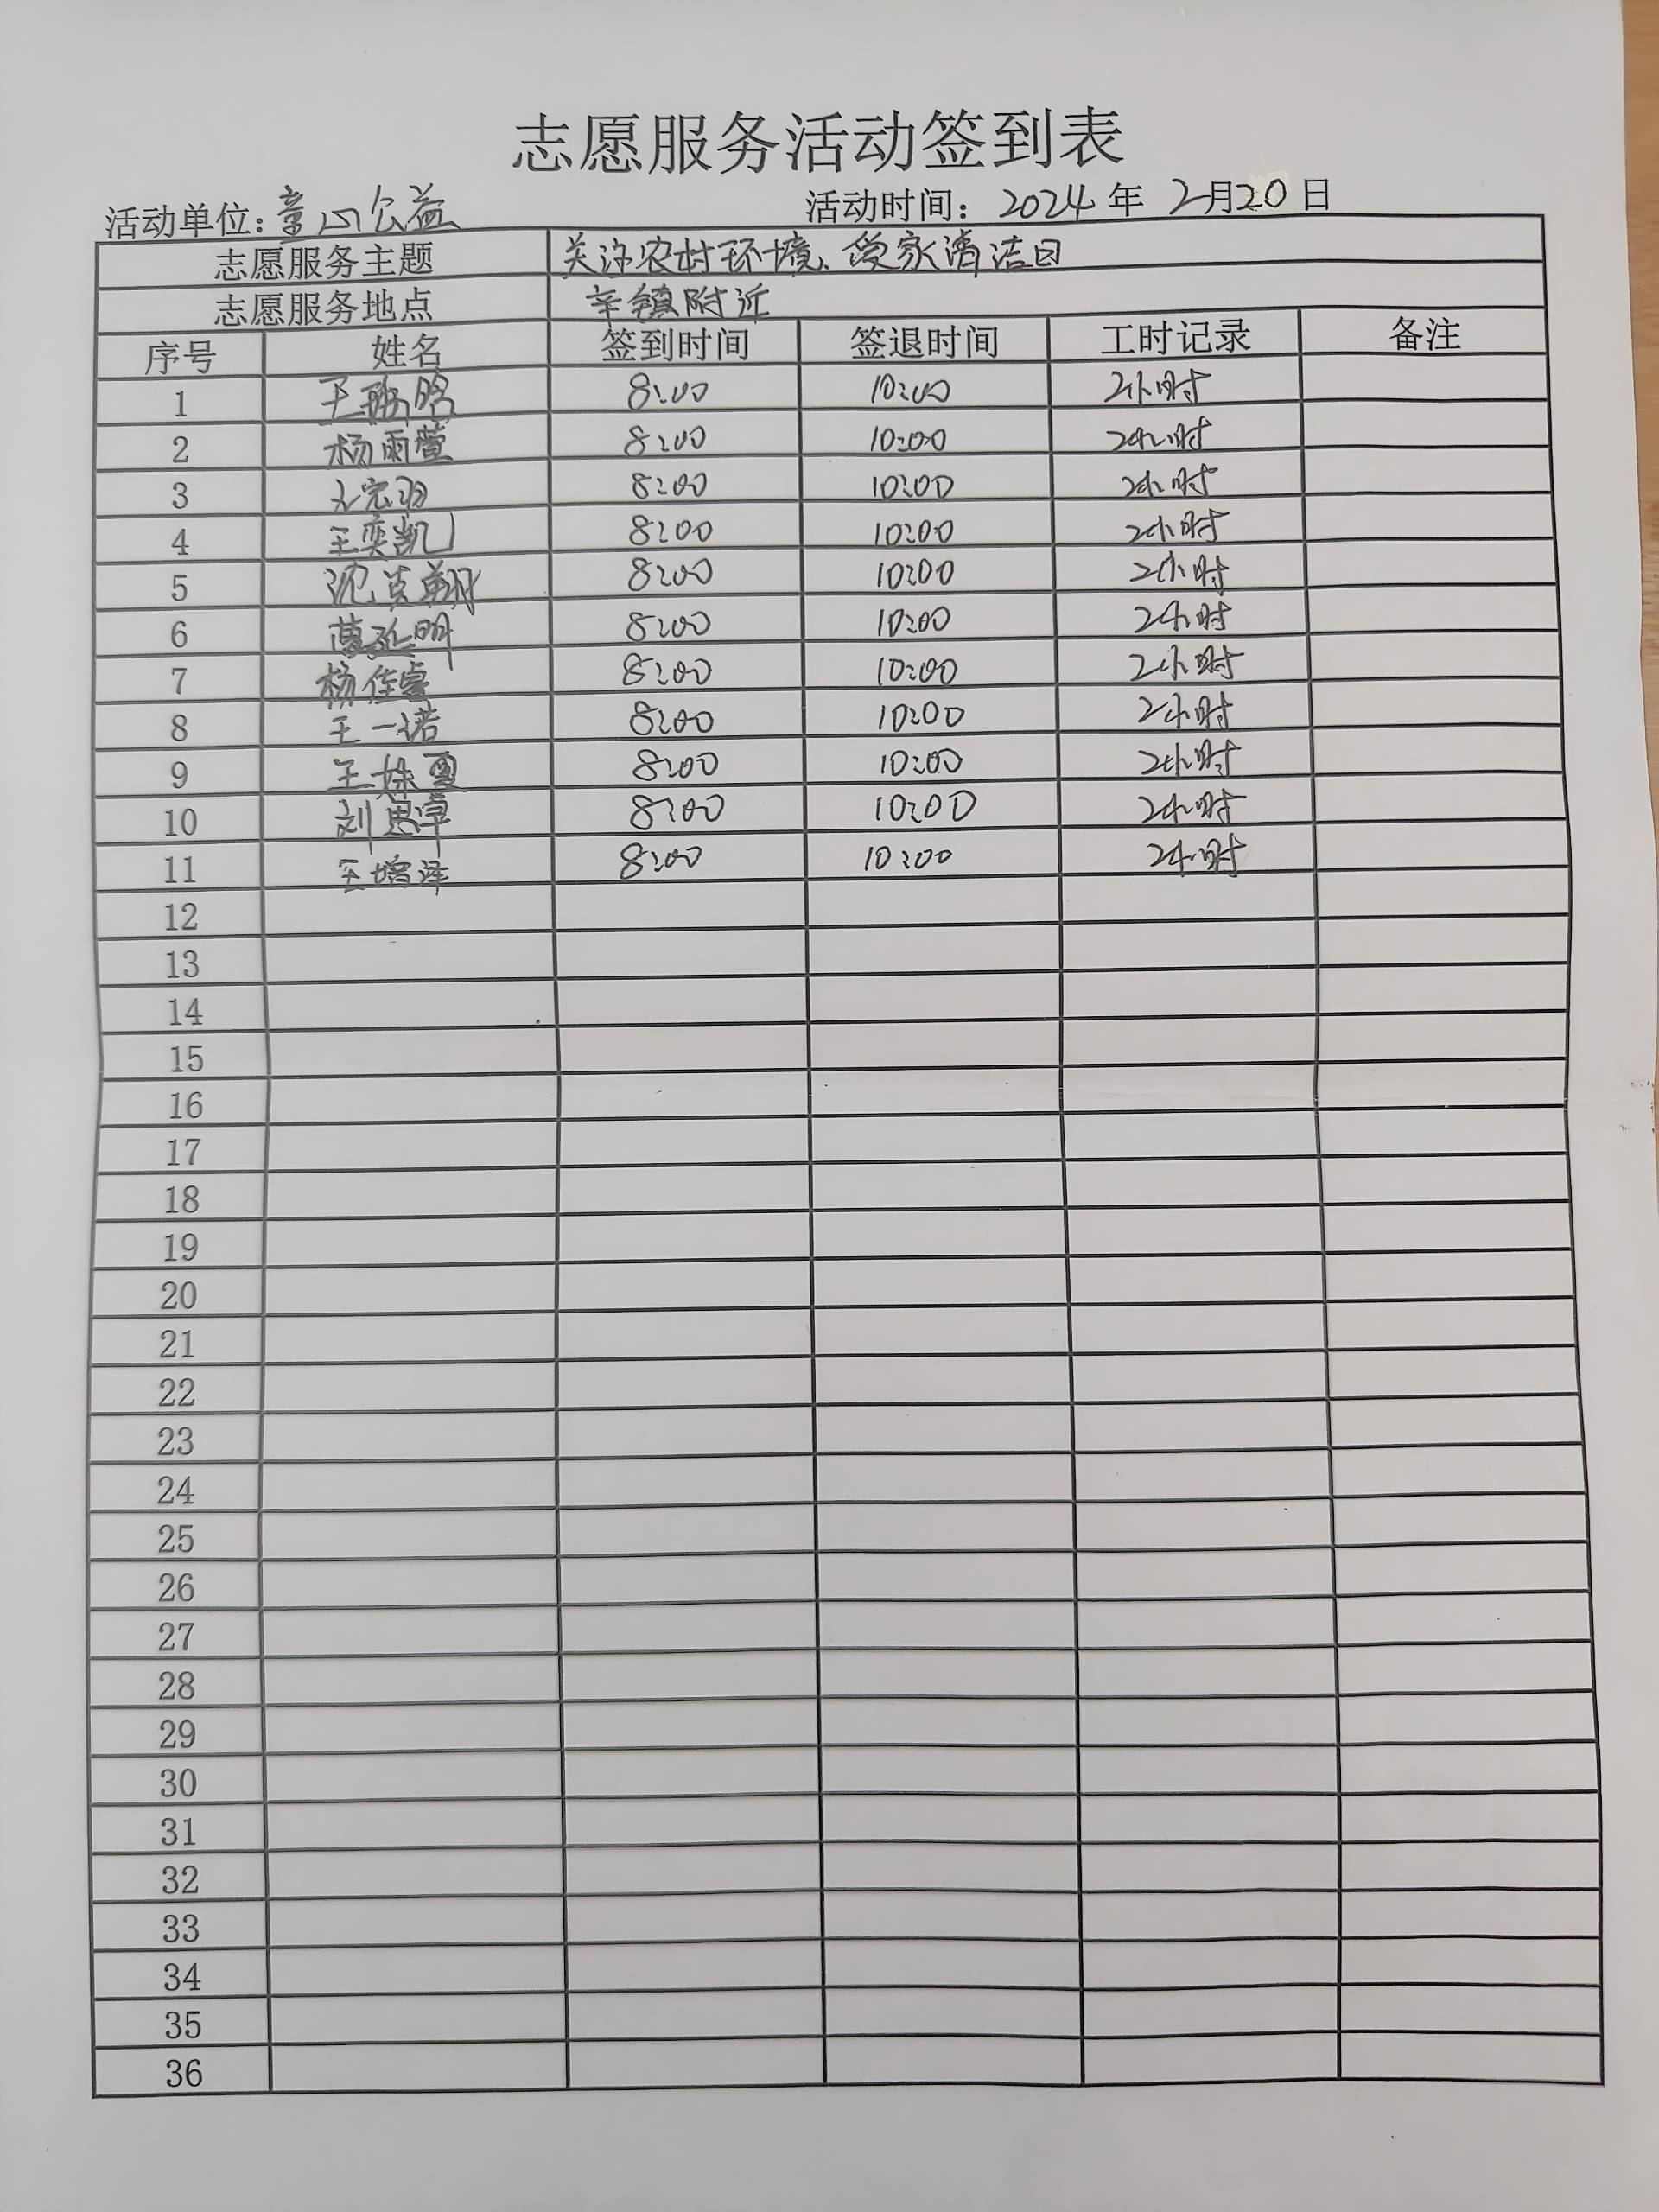 志愿服务活动签到表
活动单位：童心公益 活动时间： 2024 年 2月20日
志愿服务主题 关注农村环境、爱家清洁日
志愿服务地点 辛镇附近
序号 姓名 签到时间 签退时间 工时记录 备注
1 王 8:00 10:00 2小时
2 杨雨萱 8:00 10:00 2小时
3 8:00 10:00 2小时
4 王奕凯 8:00 10:00 2小时
5 沈克翔 8:00 10:00 2小时
6 8:00 10:00 2小时
7 杨佳睿 8:00 10:00 2小时
8 王一诺 8:00 10:00 2小时
9 王姝雪 8:00 10:00 2小时
10 刘思 8:00 10:00 2小时
11 王增泽 8:00 10:00 2小时
12
13
14
15
16
17
18
19
20
21
22
23
24
25
26
27
28
29
30
31
32
33
34
35
36